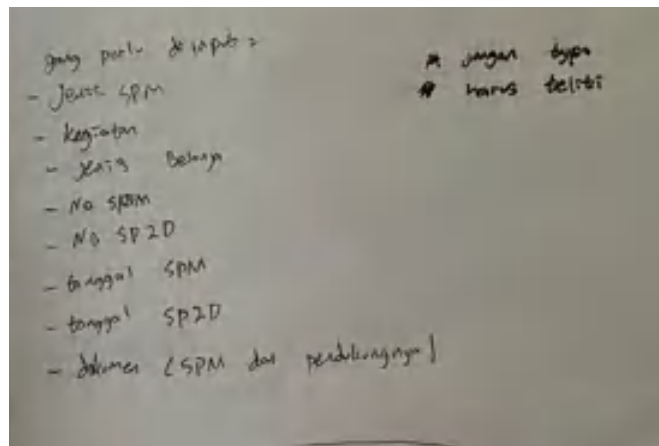 yang perlu di input :
- Jenis SPM
- kegiatan
- jenis Belanja
- No SPM
- No SP2D
- tanggal SPM
- tanggal SP2D
- dokumen (SPM dan pendukungnya)
* jangan typo
* harus teliti